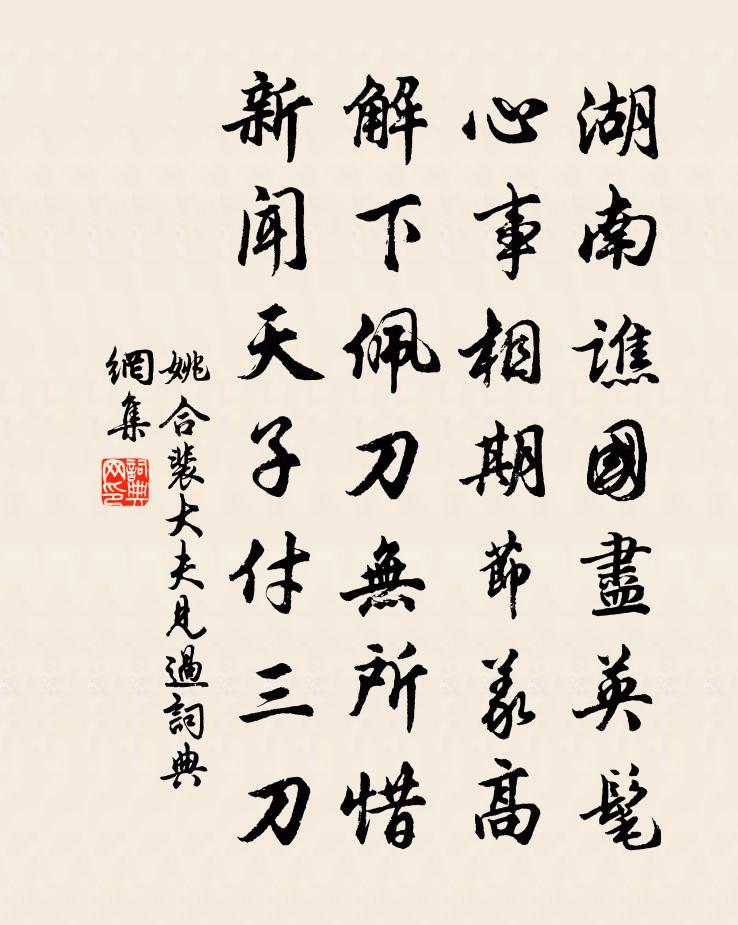 湖南譙國盡英髦
心事相期節義高
解下佩刀無所惜
新聞天子付三刀
姚合裴大夫見過詞典
網集
詞典網印